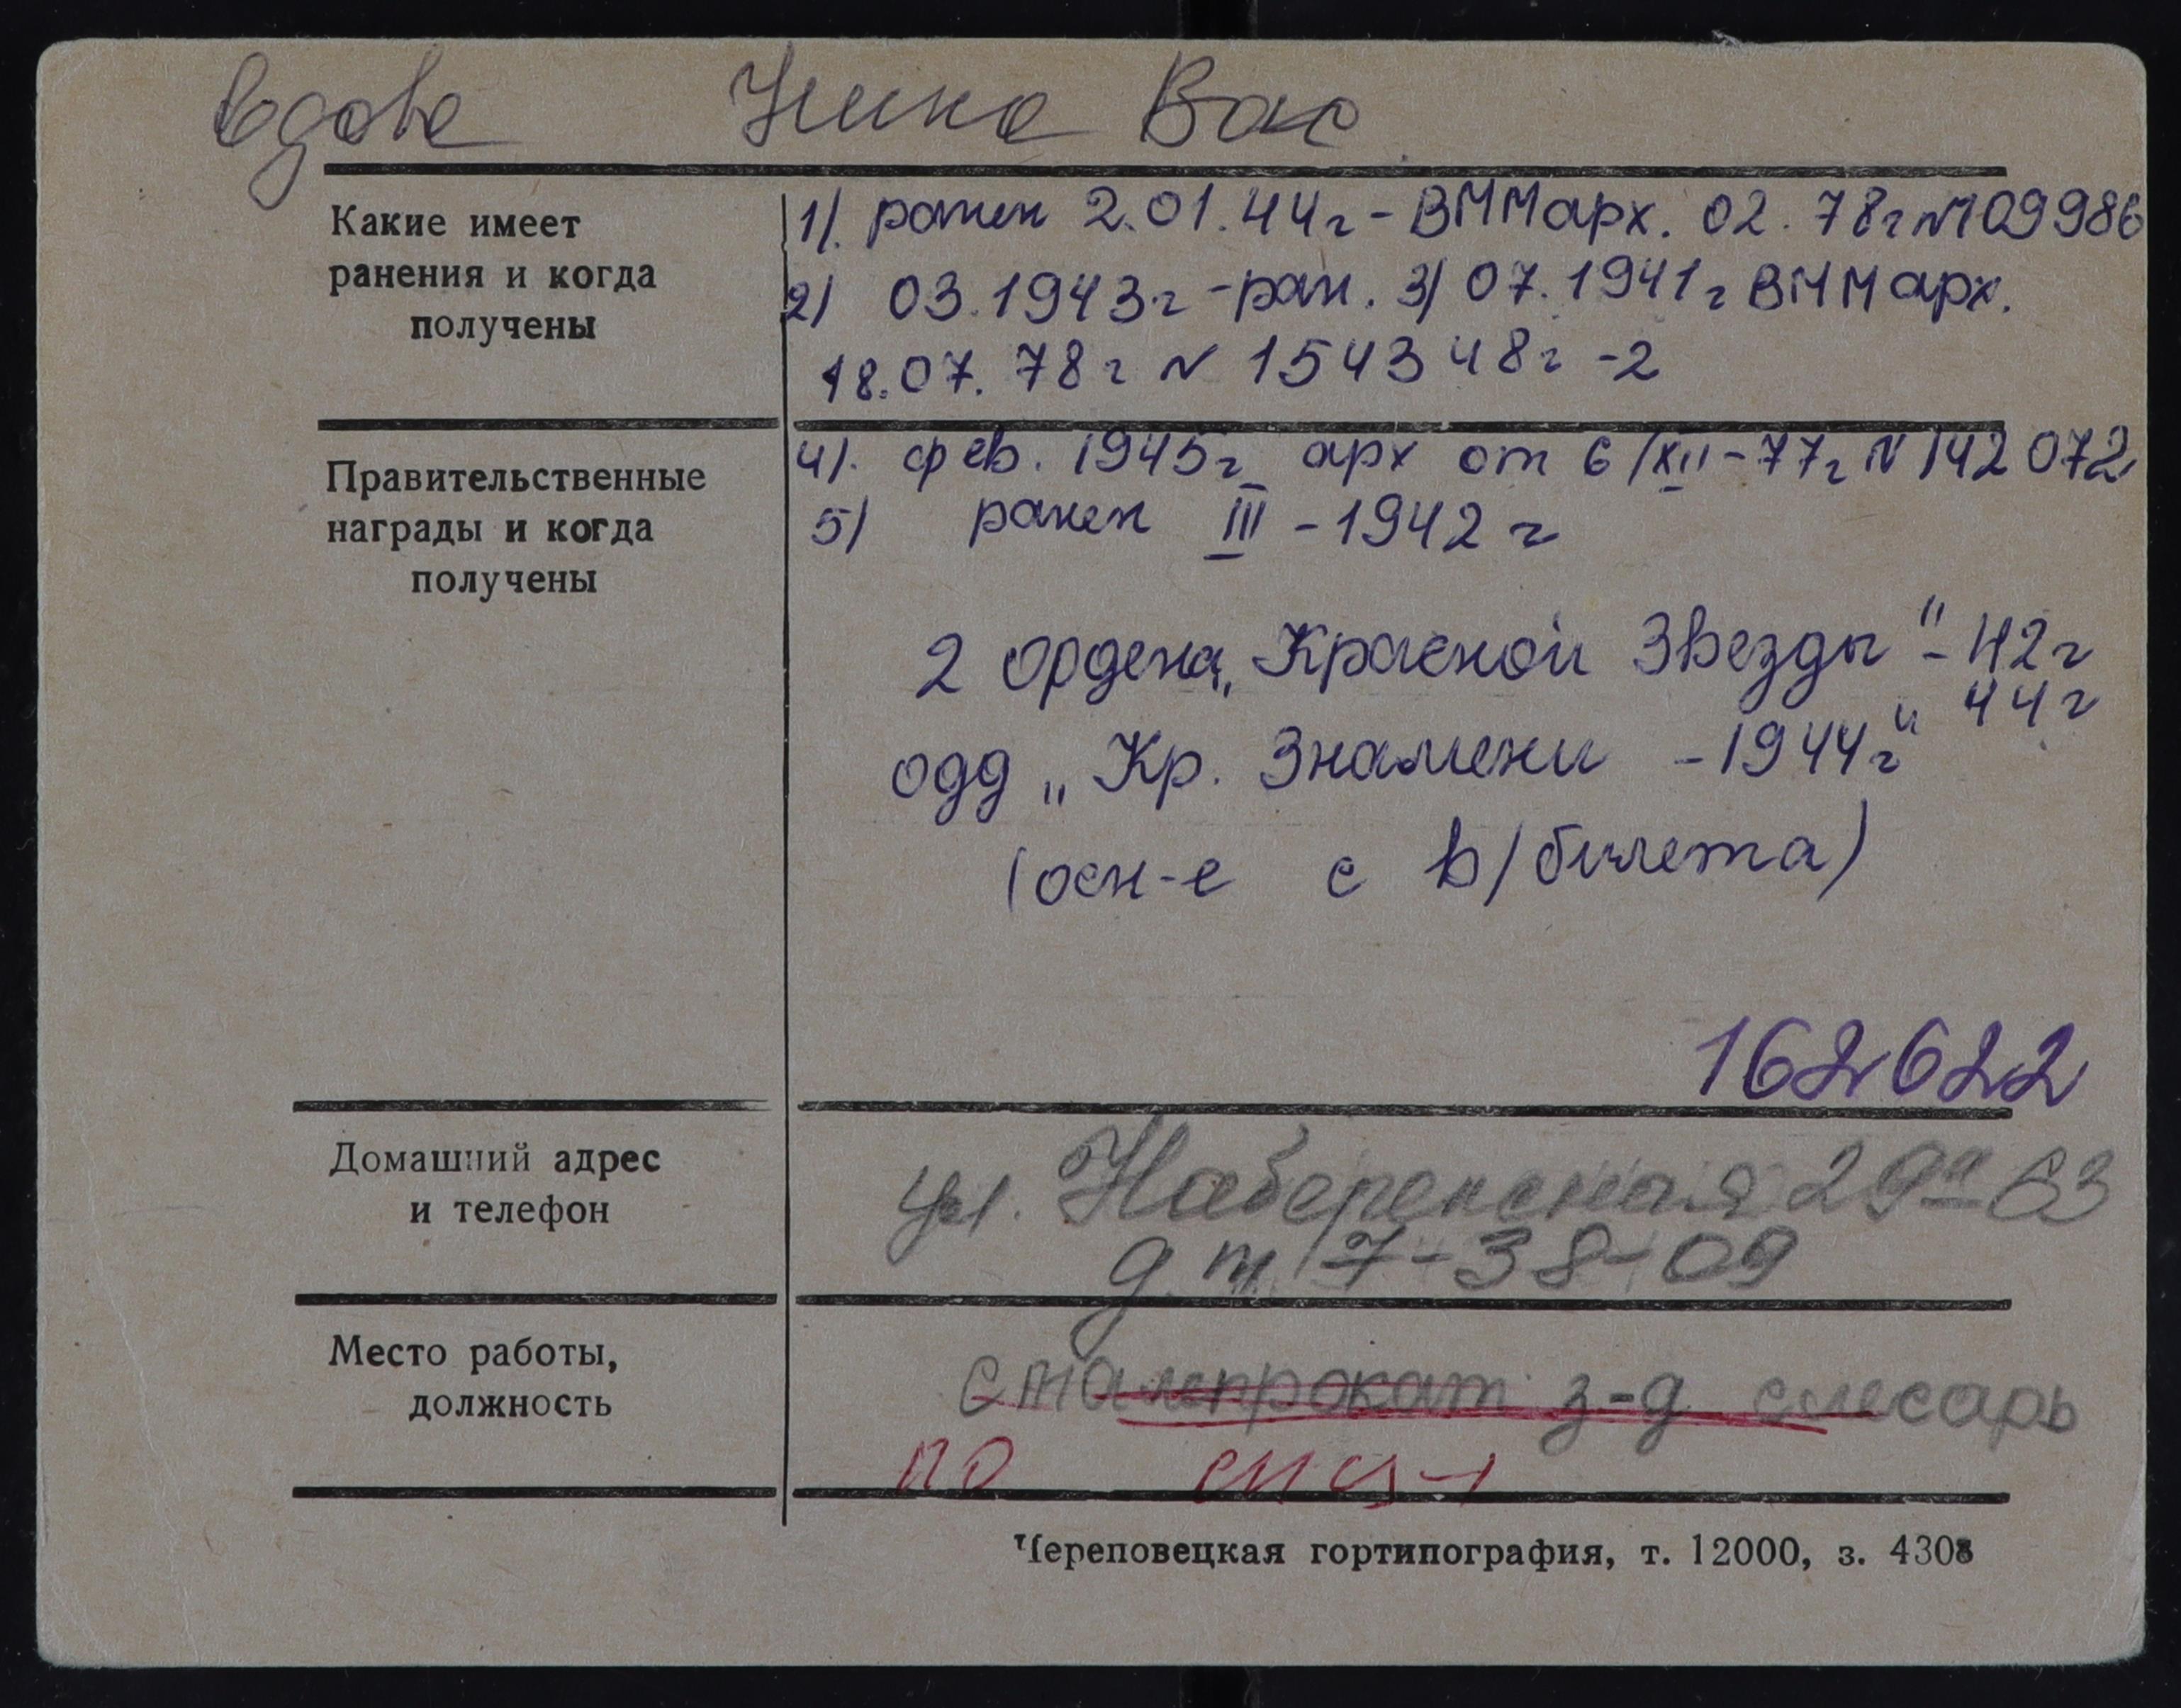 вдова Нина Вас
Какие имеет
ранения и когда
получены
1). ранен 2.01.44г - ВММарх. 02.78г №109986
2) 03.1943г - ран. 3) 07.1941г ВММ арх.
18.07.78г № 154348г -2
Правительственные
награды и когда
получены
4). фев. 1945г арх от 6/XII-77г № 142072
5) ранен III - 1942 г
2 ордена „Красной Звезды" - 42г
44г
орд „Кр. Знамени - 1944г"
(осн-е с в/билета)
162622
Домашний адрес
и телефон
ул. Набережная 29а-63
д.т. 7-38-09
Место работы,
должность
сталепрокат з-д слесарь
ПО
Череповецкая гортипография, т. 12000, з. 4308